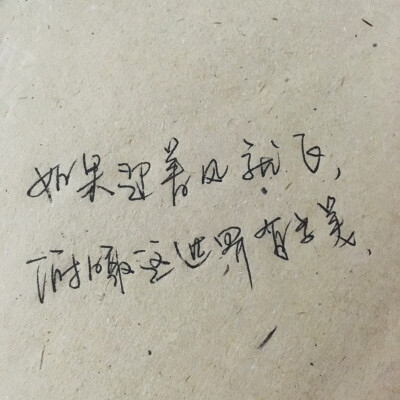 如果迎着风就飞,
俯瞰这世界有多美,